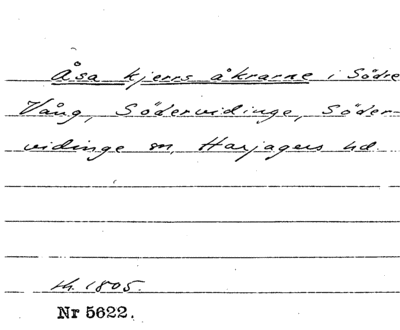 Åsa kjerrs åkrarne i Södre
Vång, Södervidinge, Söder-
vidinge sn, Harjagers hd.
Lh. 1805.
Nr 5622.